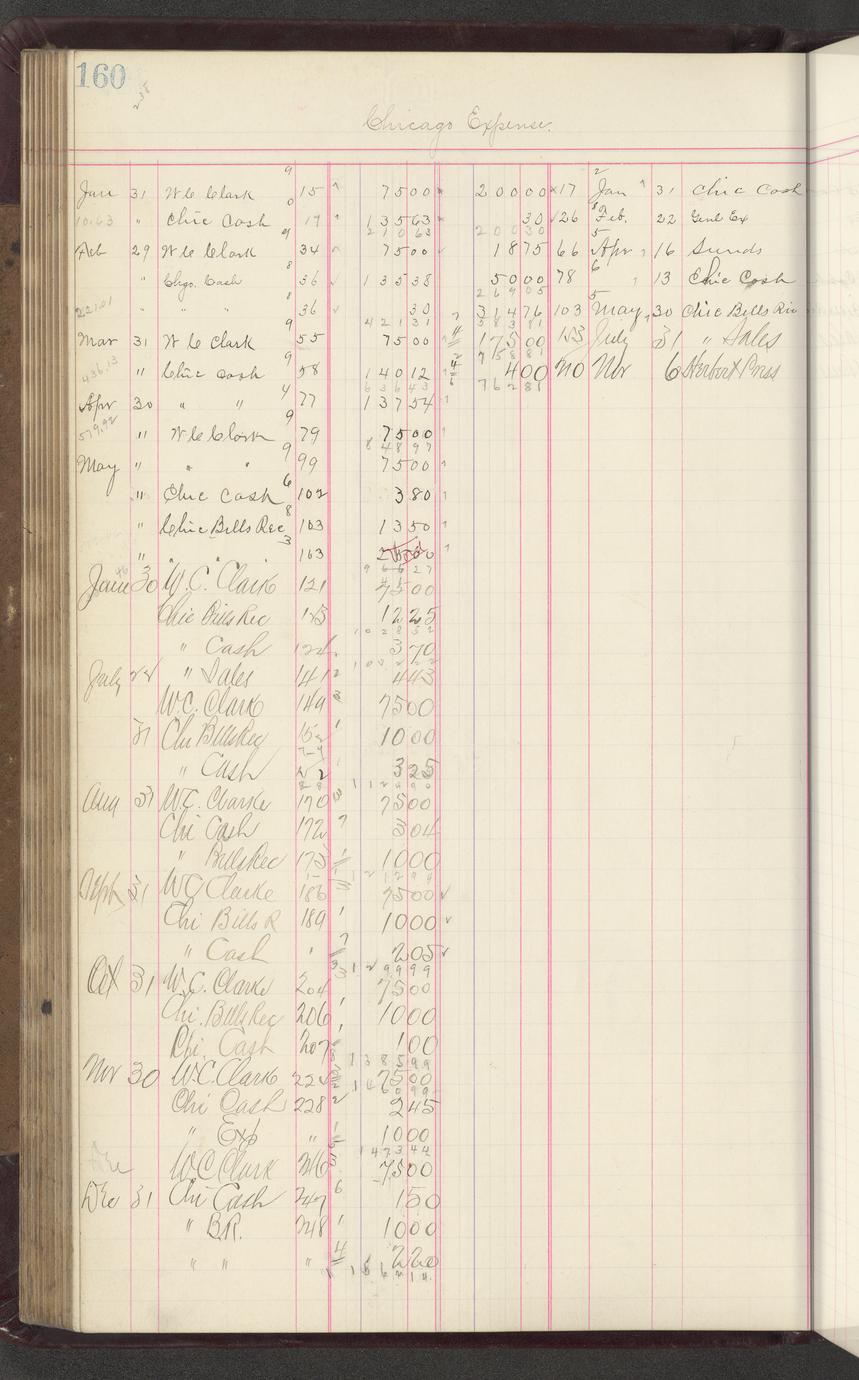 160
Chicago Expense.
Jan 31 W C Clark 15 7500 20000 17 Jan 31 Chic Cash
10.63 " Chic Cash 17 13563 30 26 Feb. 22 Genl Ex
21063 20030
Feb 29 W C Clark 34 7500 1875 66 Apr 16 Sunds
" Chgo. Cash 36 13538 5000 78 " 13 Chic Cash
26905
221.01 " " " 36 30 31476 103 May 30 Chic Bills Riv
42131 58381
Mar 31 W C Clark 55 7500 17500 153 July 31 " Sales
75881
436.13 " Chic Cash 58 14012 400 210 Nov 6 Herbert Press
63643 76281
Apr 30 " " 77 13754
579.92 " W C Clark 79 7500
84897
May " " " 99 7500
" Chic Cash 102 380
" Chic Bills Rec 103 1350
" " " 163
96627
June 30 W. C. Clark 121 7500
Chic Bills Rec 123 1225
102852
" Cash 124 370
103222
July " Sales 141 443
W.C. Clark 149 7500
31 Chi Bills Rec 152 1000
" Cash 325
112490
Aug 31 W.C. Clarke 170 7500
Chi Cash 172 304
" Bills Rec 173 1000
121294
Sept 31 W C Clarke 186 7500
Chi Bills R 189 1000
" Cash " 205
129999
Oct 31 W.C. Clarke 204 7500
Chi. Bills Rec 206 1000
Chi. Cash 207 100
138599
Nov 30 W.C. Clark 224 7500
146099
Chi Cash 228 245
" Exp " 1000
147344
Dec W C Clark 246 7500
Dec 31 Chi Cash 247 150
" B.R. 248 1000
" " " 220